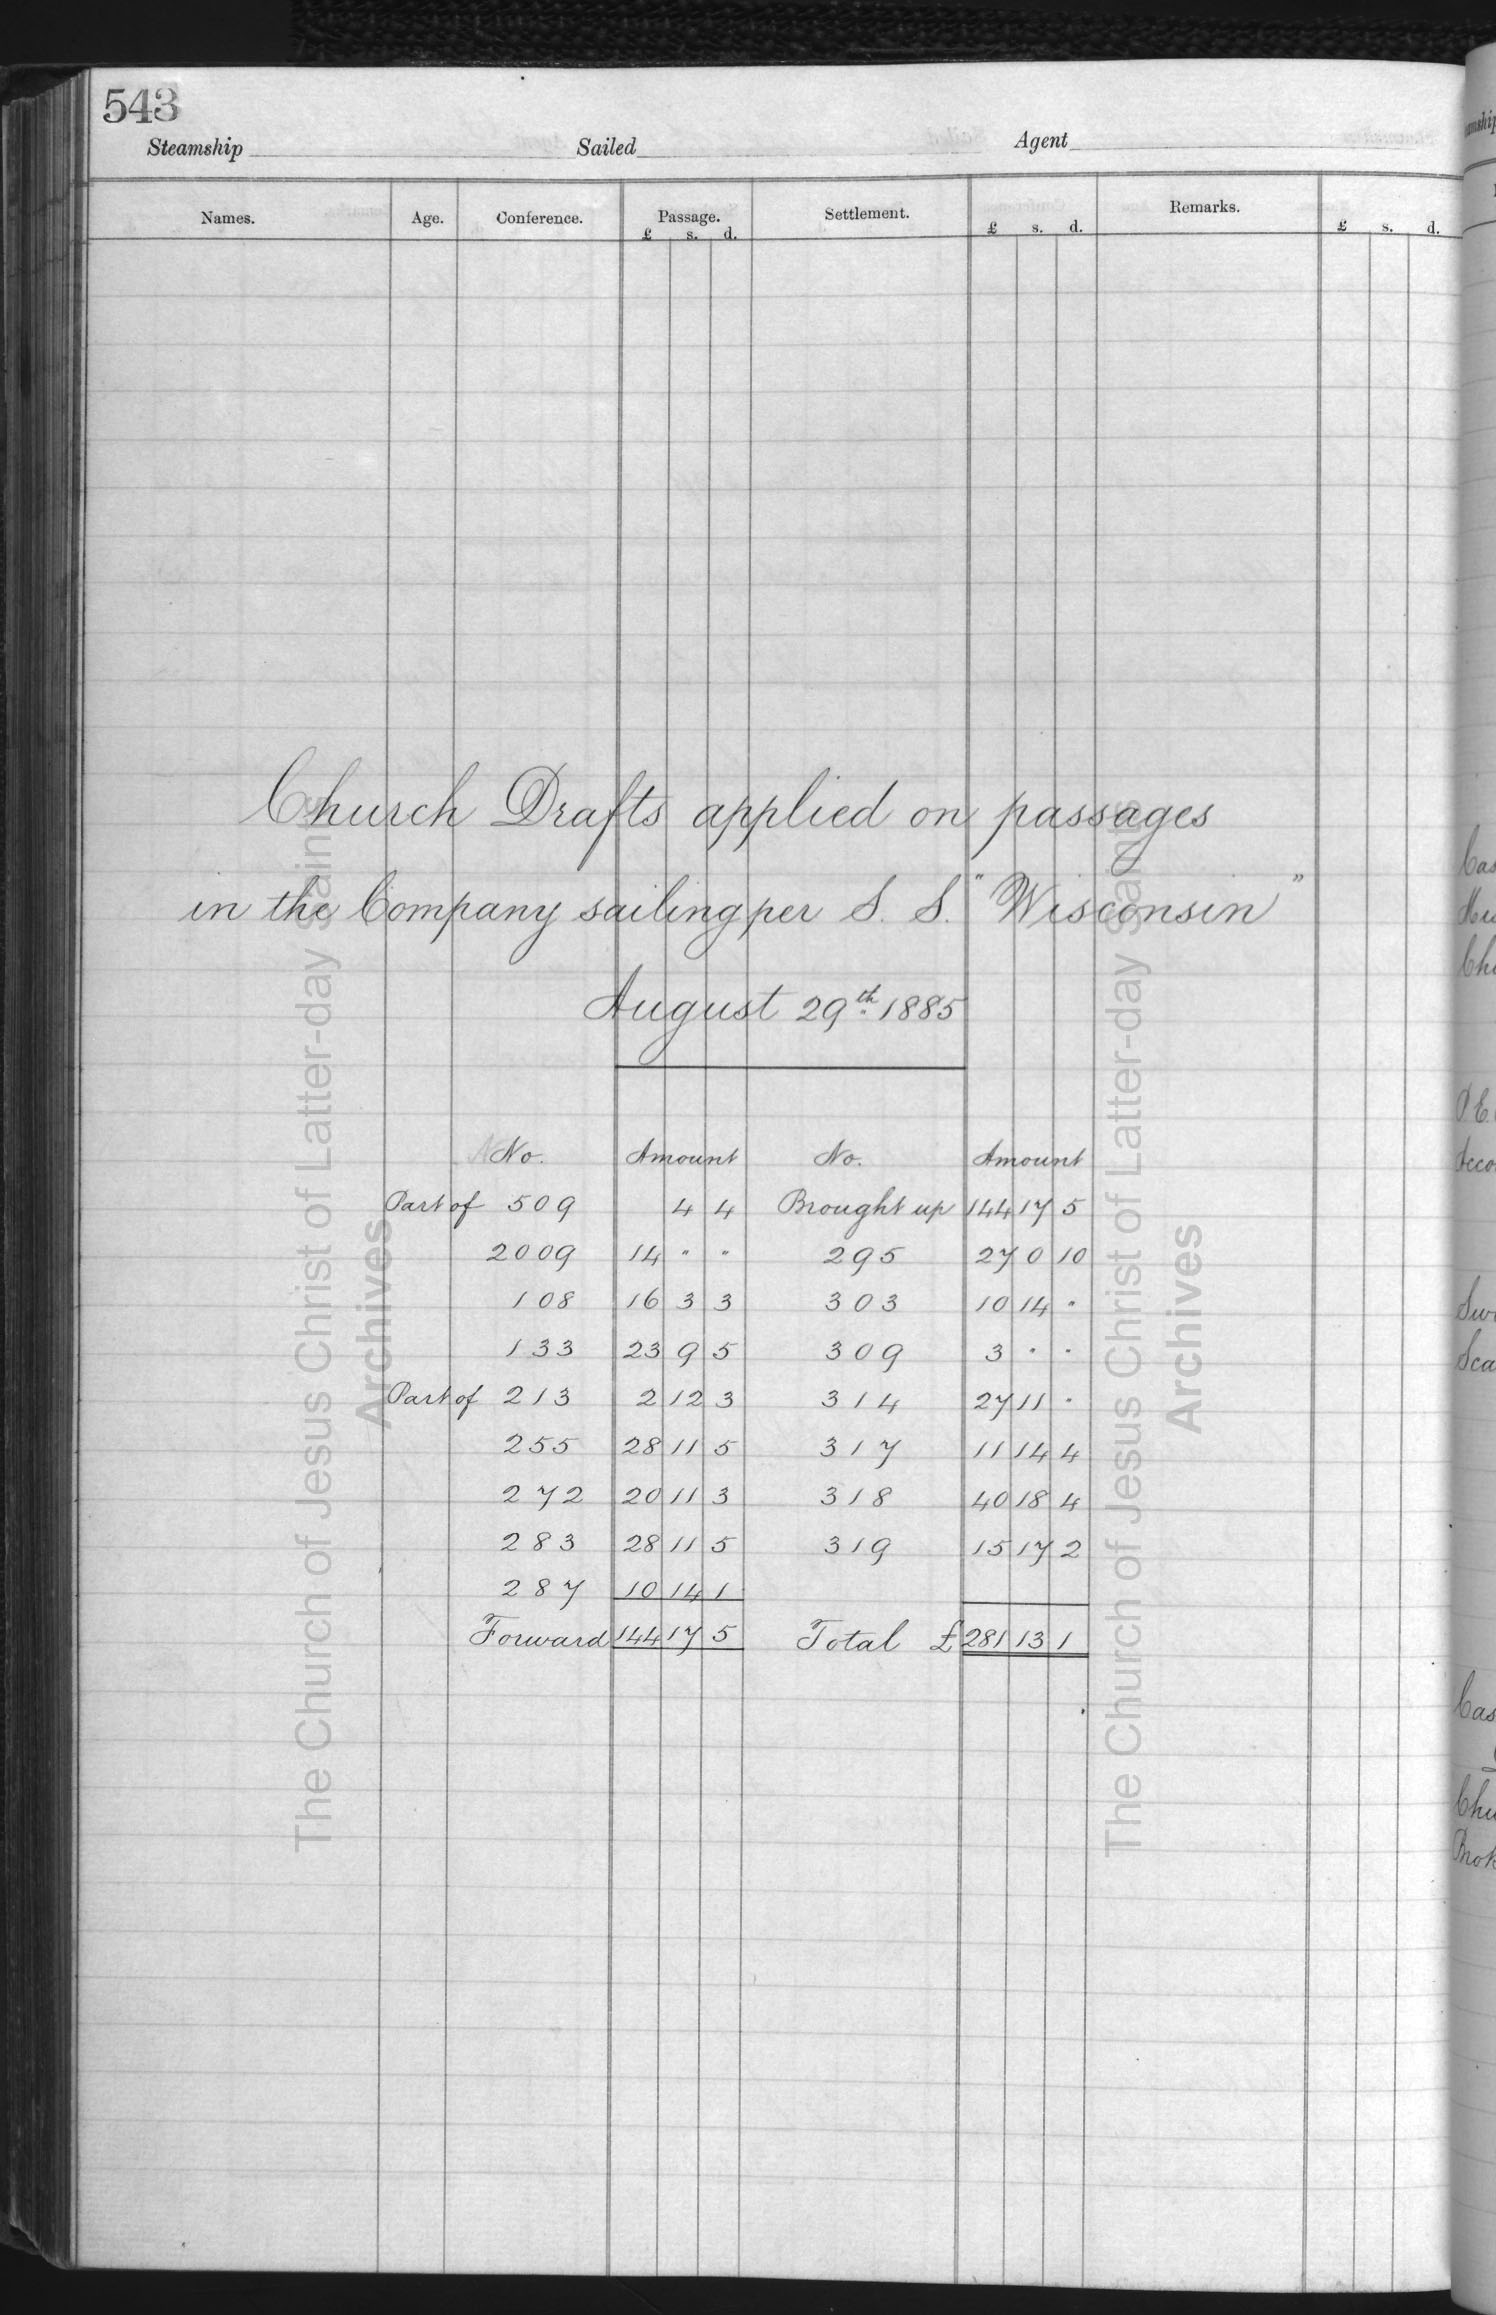 543
Steamship Sailed Agent
Names. Age. Conference. Passage. Settlement. Remarks.
£ s. d. £ s. d. £ s. d.
Church Drafts applied on passages
in the Company sailing per S. S. "Wisconsin"
August 29th 1885
No. Amount No. Amount
Part of 509 4 4 Brought up 144 17 5
2009 14 " " 295 27 0 10
108 16 3 3 303 10 14 "
133 23 9 5 309 3 " "
Part of 213 2 12 3 314 27 11 "
255 28 11 5 317 11 14 4
272 20 11 3 318 40 18 4
283 28 11 5 319 15 17 2
287 10 14 1
Forward 144 17 5 Total £ 281 13 1
The Church of Jesus Christ of Latter-day Saints
Archives
The Church of Jesus Christ of Latter-day Saints
Archives